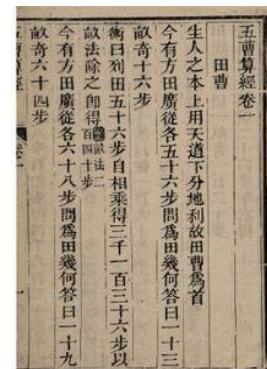 五曹算經卷一
田曹
生人之本上用天道下分地利故田曹爲首
今有方田廣從各五十六步問爲田幾何答曰一十三
畝奇十六步
術曰列田五十六步自相乘得三千一百三十六步以
畝法除之卽得畝法二百四十步
今有方田廣從各六十八步問爲田幾何答曰一十九
畝奇六十四步
五曹算經 卷一 一